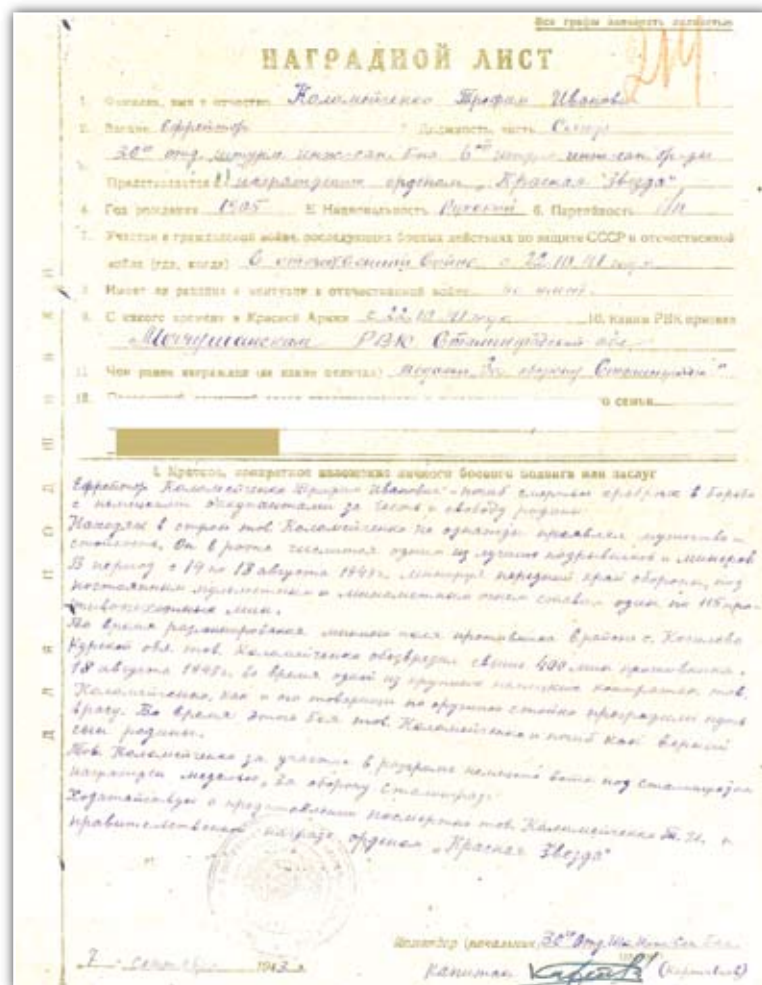 Все графы заполнять полностью
НАГРАДНОЙ ЛИСТ
214
1. Фамилия, имя и отчество Коломейченко Трофим Иванович
2. Звание Ефрейтор Должность, часть Сапер
30го отд. штурм. инж-сап. б-на 6ой штурм инж-сап бр-ды
Представляется к награждению орденом „Красная Звезда"
4. Год рождения 1905 5. Национальность Русский 6. Партийность б/п
7. Участие в гражданской войне, последующих боевых действиях по защите СССР и отечественной
войне (где, когда) В отечественной войне с 22.10.41 года
8. Имеет ли ранения и контузии в отечественной войне не имеет.
9. С какого времени в Красной Армии с 22.10.41 года 10. Каким РВК призван
РВК Сталинградской обл.
11. Чем ранее награжден (за какие отличия) медалью За оборону Сталинграда"
12.
о семьи
ДЛЯ ПОДШИВКИ
I. Краткое, конкретное изложение личного боевого подвига или заслуг
Ефрейтор Коломейченко Трофим Иванович – погиб смертью храбрых в борьбе
с немецкими оккупантами за честь и свободу родины.
Находясь в строю тов. Коломейченко не однажды проявлял мужество и
стойкость. Он в роте числится одним из лучших подрывников и минеров
В период с по 18 августа 1943г. минируя передний край обороны, под
постоянным пулеметным и минометным огнем ставил один по 115 про-
тивопехотных мин.
Во время разминирования минного поля противника в районе с.
Курской обл. тов. Коломейченко обезвредил свыше 400 мин противника.
18 августа 1943г. во время одной из крупных немецких контратак тов.
Коломейченко, как и его товарищи по оружию стойко преградили путь
врагу. Во время этого боя тов. Коломейченко и погиб как верный
сын родины.
Тов. Коломейченко за участие в разгроме немецких войск под Сталинградом
награжден медалью „За оборону Сталинграда.
Ходатайствую о представлении посмертно тов. Коломейченко Т.И. к
правительственной награде орденом „Красная Звезда"
Командир (начальник) 30го Отд. Шт. Инж Сап Б-на
7 сентября 1943 г.
капитан